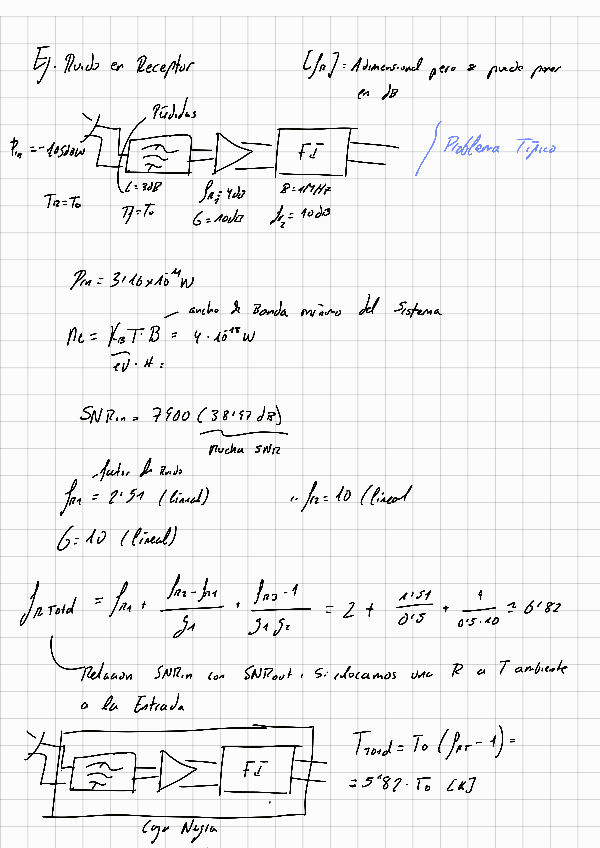 Ej. Ruido en Receptor
[fR] = Adimensional pero se puede poner
en dB
Pérdidas
Pin = -105dBW
FI
Problema Típico
L=3dB
fR1=4dB
B=1MHz
TR=T0
Tf=T0
G=10dB
fR2=10dB
Pin = 3'16x10^-11 W
ancho de Banda mínimo del Sistema
KB T·B = 4·10^-15 W
SNRin = 7900 (38'97 dB)
Mucha SNR
factor de Ruido
fR1 = 2'51 (lineal)
fR2=10 (lineal
G=10 (lineal)
fR Total = fR1 + (fR2-fR1)/g1 + (fR3-1)/(g1 g2) = 2 + 1'51/0'5 + 9/(0'5·10) = 6'82
Relación SNRin con SNRout, Si colocamos una R a T ambiente
a la Entrada
FI
TTotal = T0 (fRT - 1) =
= 5'82·T0 [K]
Caja Negra